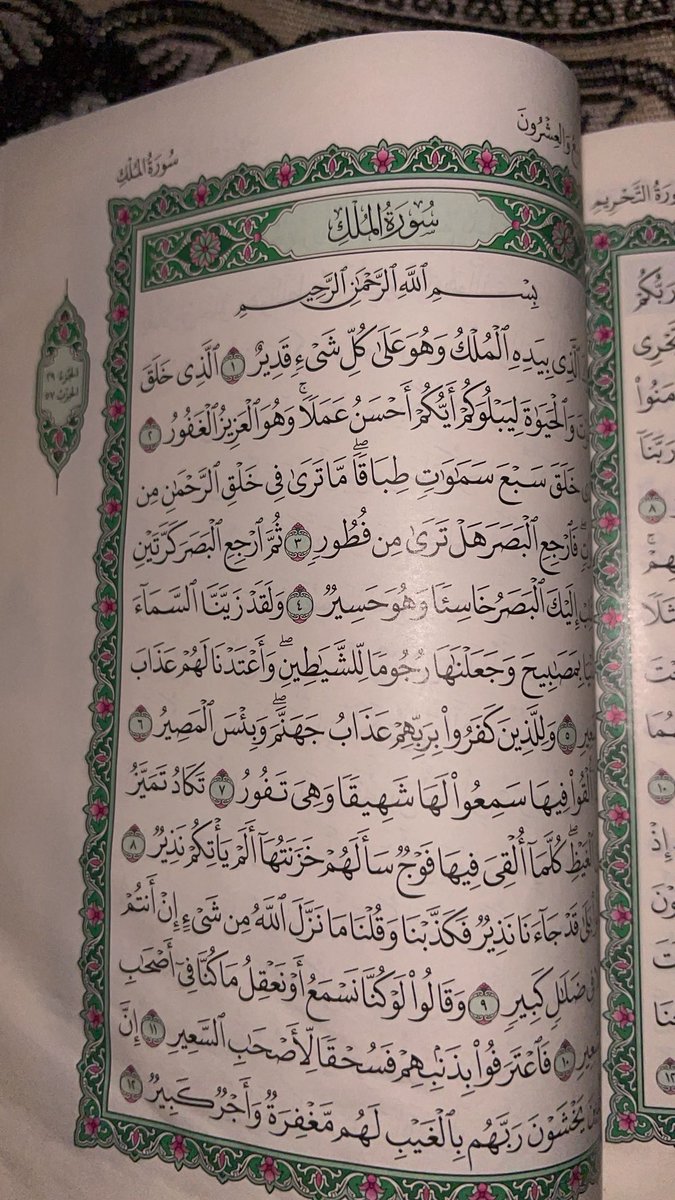 سُورَةُ المُلْكِ
وَالعِشْرُونَ
سُورَةُ المُلْكِ
بِسْمِ ٱللَّهِ ٱلرَّحْمَٰنِ ٱلرَّحِيمِ
ٱلَّذِى بِيَدِهِ ٱلْمُلْكُ وَهُوَ عَلَىٰ كُلِّ شَىْءٍ قَدِيرٌ ١ ٱلَّذِى خَلَقَ
وَٱلْحَيَوٰةَ لِيَبْلُوَكُمْ أَيُّكُمْ أَحْسَنُ عَمَلًا ۚ وَهُوَ ٱلْعَزِيزُ ٱلْغَفُورُ ٢
خَلَقَ سَبْعَ سَمَٰوَٰتٍ طِبَاقًا ۖ مَّا تَرَىٰ فِى خَلْقِ ٱلرَّحْمَٰنِ مِن
فَٱرْجِعِ ٱلْبَصَرَ هَلْ تَرَىٰ مِن فُطُورٍ ٣ ثُمَّ ٱرْجِعِ ٱلْبَصَرَ كَرَّتَيْنِ
إِلَيْكَ ٱلْبَصَرُ خَاسِئًا وَهُوَ حَسِيرٌ ٤ وَلَقَدْ زَيَّنَّا ٱلسَّمَآءَ
بِمَصَٰبِيحَ وَجَعَلْنَٰهَا رُجُومًا لِّلشَّيَٰطِينِ ۖ وَأَعْتَدْنَا لَهُمْ عَذَابَ
٥ وَلِلَّذِينَ كَفَرُوا۟ بِرَبِّهِمْ عَذَابُ جَهَنَّمَ ۖ وَبِئْسَ ٱلْمَصِيرُ ٦
أُلْقُوا۟ فِيهَا سَمِعُوا۟ لَهَا شَهِيقًا وَهِىَ تَفُورُ ٧ تَكَادُ تَمَيَّزُ
ٱلْغَيْظِ ۖ كُلَّمَآ أُلْقِىَ فِيهَا فَوْجٌ سَأَلَهُمْ خَزَنَتُهَآ أَلَمْ يَأْتِكُمْ نَذِيرٌ ٨
قَدْ جَآءَنَا نَذِيرٌ فَكَذَّبْنَا وَقُلْنَا مَا نَزَّلَ ٱللَّهُ مِن شَىْءٍ إِنْ أَنتُمْ
فِى ضَلَٰلٍ كَبِيرٍ ٩ وَقَالُوا۟ لَوْ كُنَّا نَسْمَعُ أَوْ نَعْقِلُ مَا كُنَّا فِىٓ أَصْحَٰبِ
١٠ فَٱعْتَرَفُوا۟ بِذَنۢبِهِمْ فَسُحْقًا لِّأَصْحَٰبِ ٱلسَّعِيرِ ١١ إِنَّ
يَخْشَوْنَ رَبَّهُم بِٱلْغَيْبِ لَهُم مَّغْفِرَةٌ وَأَجْرٌ كَبِيرٌ ١٢
الجزء ٢٩
الحزب ٥٧
التَّحْرِيمِ
رَبُّكُمْ
رَبَّنَآ
٨
١٠
إِذْ
١٢